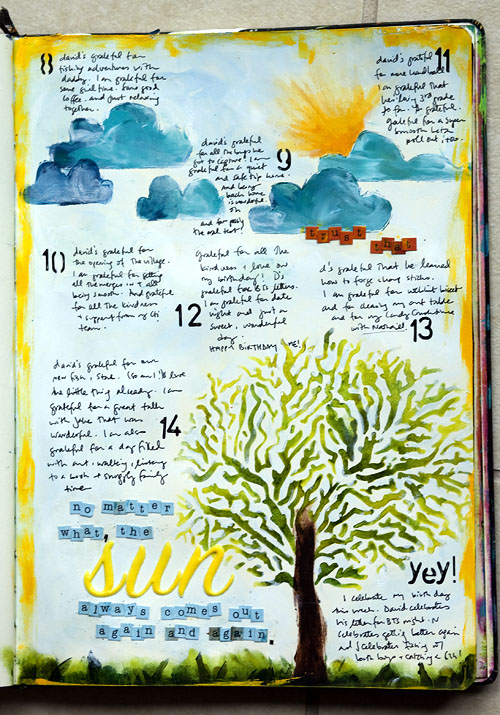 8
david's grateful for
fishing adventures with
daddy. I am grateful for
some girl time. some good
coffee. and just relaxing
together.
11
david's grateful
for more handball
I am grateful that
he's loving 3rd grade
so far.
grateful for a super
smooth beta
roll out, too.
9
david's grateful
for all the bugs he
got to capture. I am
grateful for a quiet
and safe trip home.
And being
back home
is wonderful.
oh
and for
the oral test!
trust that
10
david's grateful for
the opening of the village.
I am grateful for getting
all the merges in & all
being smooth. And grateful
for all the kindness
& support from my
team.
12
grateful for all the
kindness & love on
my birthday! D's
grateful for BTS letters.
I am grateful for date
night and just a
sweet, wonderful
day.
HAPPY BIRTHDAY ME!
13
d's grateful that he learned
how to forge using sticks.
I am grateful for
and for cleaning my art table
and for my
with Nathaniel
14
david's grateful for our
new fish, Steve. (so am I. I'll love
the little thing already. I am
grateful for a great talk
with Jake that was
wonderful. I am also
grateful for a day filled
with art, walking, listening
to a book & snuggly family
time
no matter
what, the
sun
always comes out
again and again.
yey!
I celebrate my birthday
this week. David celebrates
his letter for BTS night. N
celebrates getting better again
and I celebrate
both boys & catching a